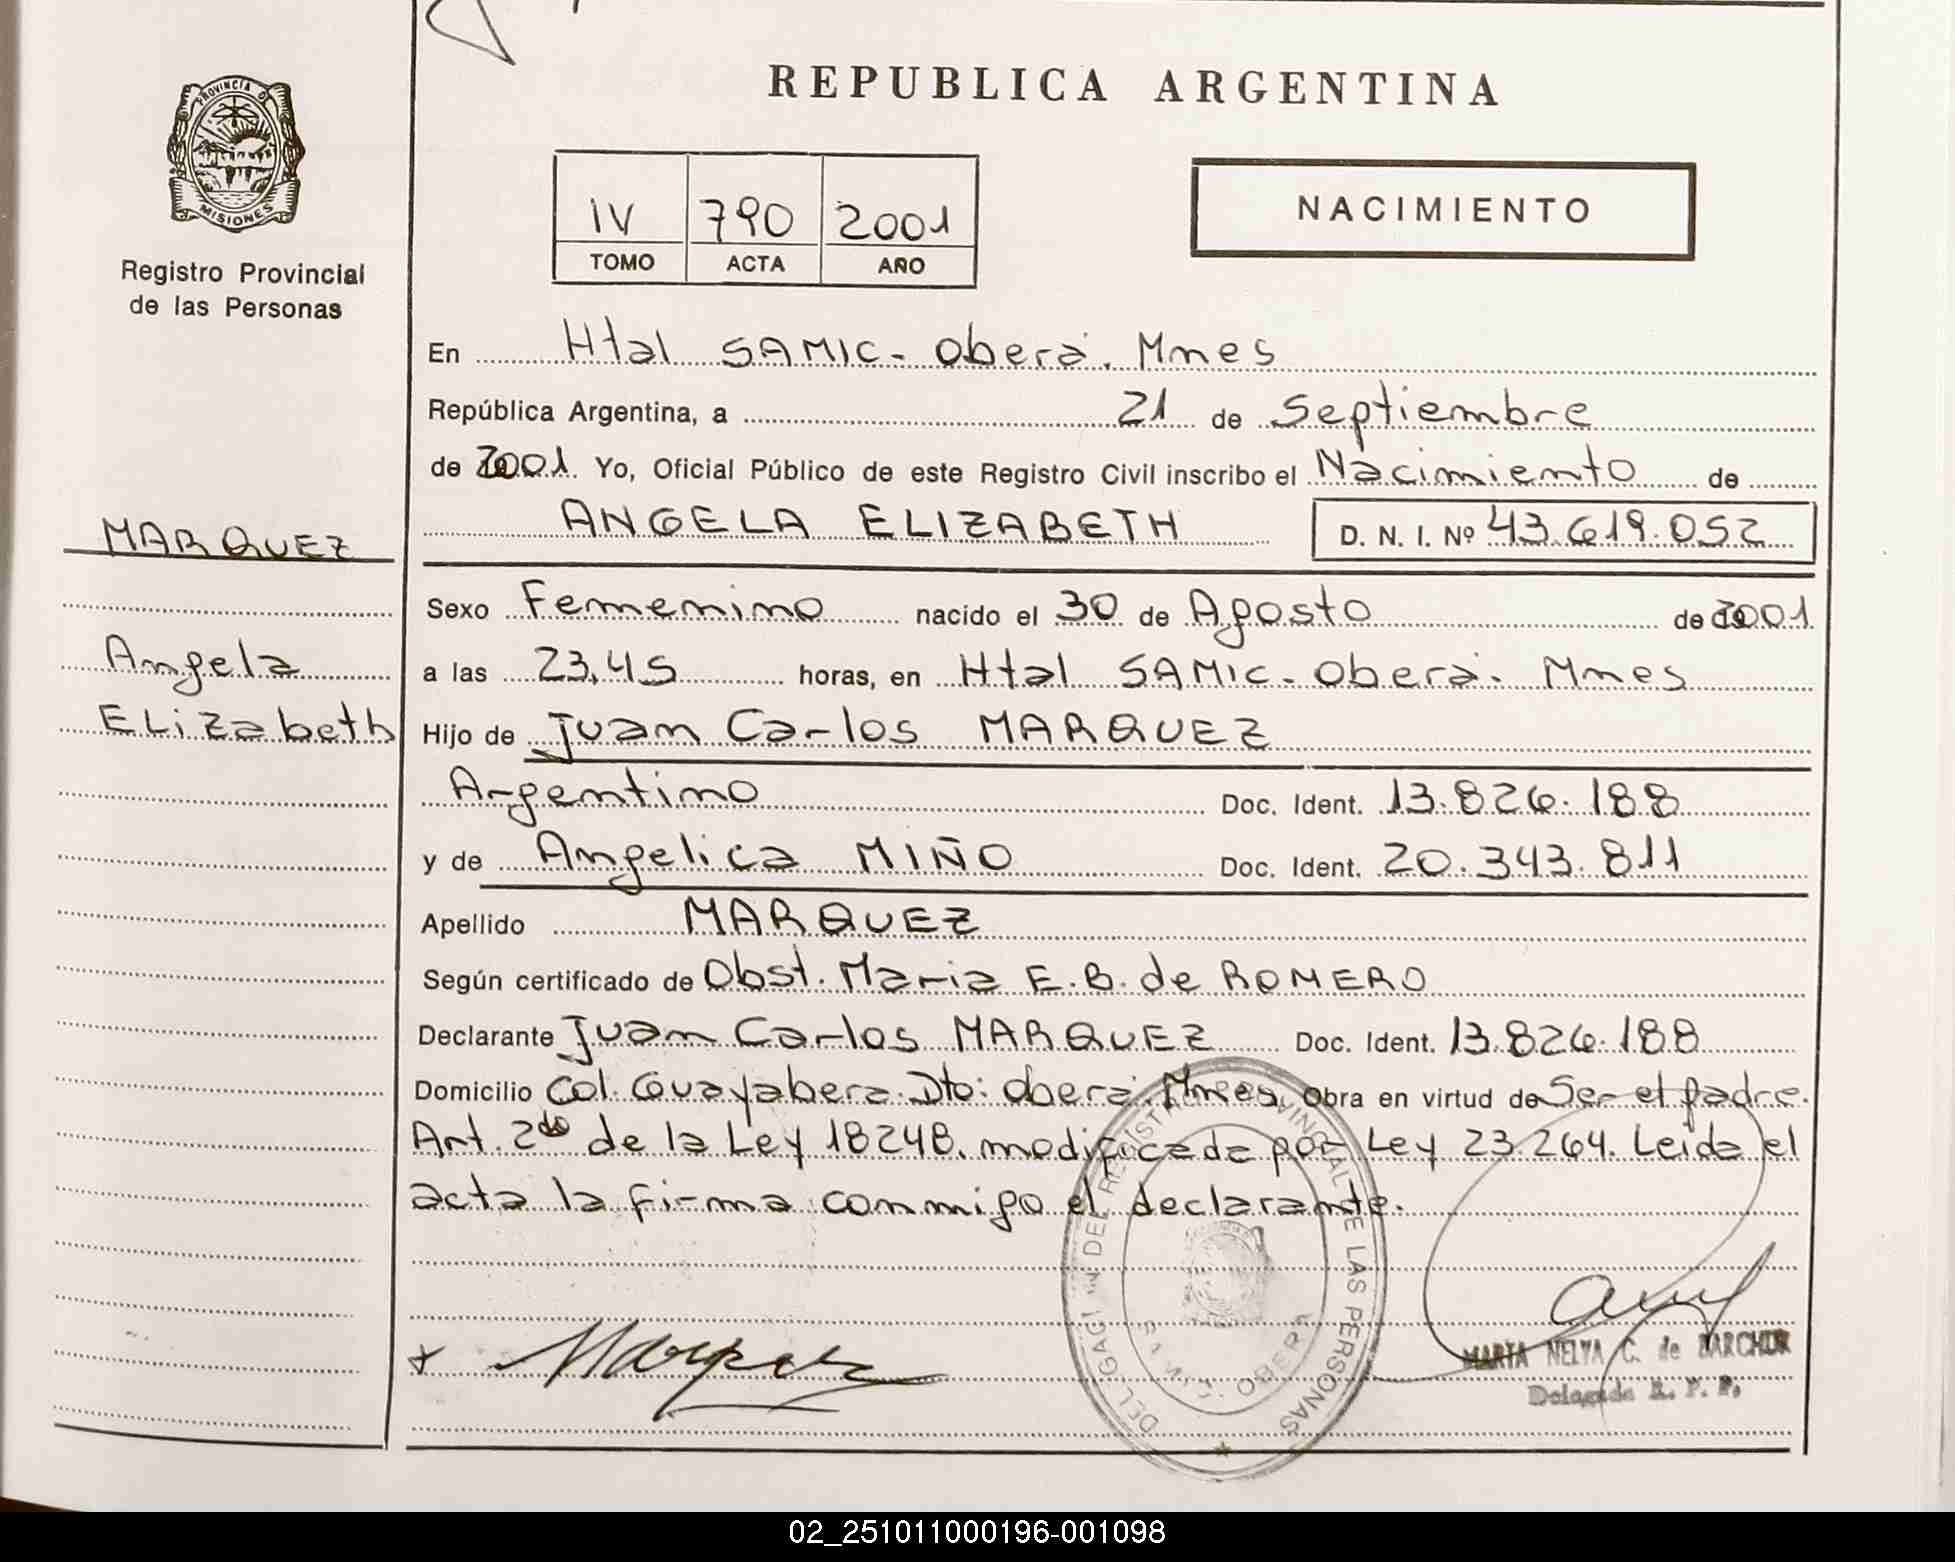 REPUBLICA ARGENTINA
PROVINCIA D
MISIONES
Registro Provincial
de las Personas
IV 790 2001
TOMO ACTA AÑO
NACIMIENTO
En Htal SAMIC - Oberá. Mnes
República Argentina, a 21 de Septiembre
de 2001. Yo, Oficial Público de este Registro Civil inscribo el Nacimiento de
ANGELA ELIZABETH D. N. I. Nº 43.619.052
MARQUEZ
Angela
ELizabeth
Sexo Femenino nacido el 30 de Agosto de 2001.
a las 23,45 horas, en Htal SAMIC - Oberá. Mnes
Hijo de Juan Carlos MARQUEZ
Argentino Doc. Ident. 13.826.188
y de Angelica MIÑO Doc. Ident. 20.343.811
Apellido MARQUEZ
Según certificado de Obst. Maria E. B. de ROMERO
Declarante Juan Carlos MARQUEZ Doc. Ident. 13.826.188
Domicilio Col. Guayabera. Dto: Oberá. Mnes. Obra en virtud de Ser el padre.
Art. 2do de la Ley 18248. modificada por Ley 23.264. Leida el
acta la firma conmigo el declarante.
DELEGACIÓN DEL REGISTRO PROVINCIAL DE LAS PERSONAS
SAMIC. OBERA
x Marquez
MARTA NELYA C. de BARCHUK
Delegada R. P. P.
02_251011000196-001098